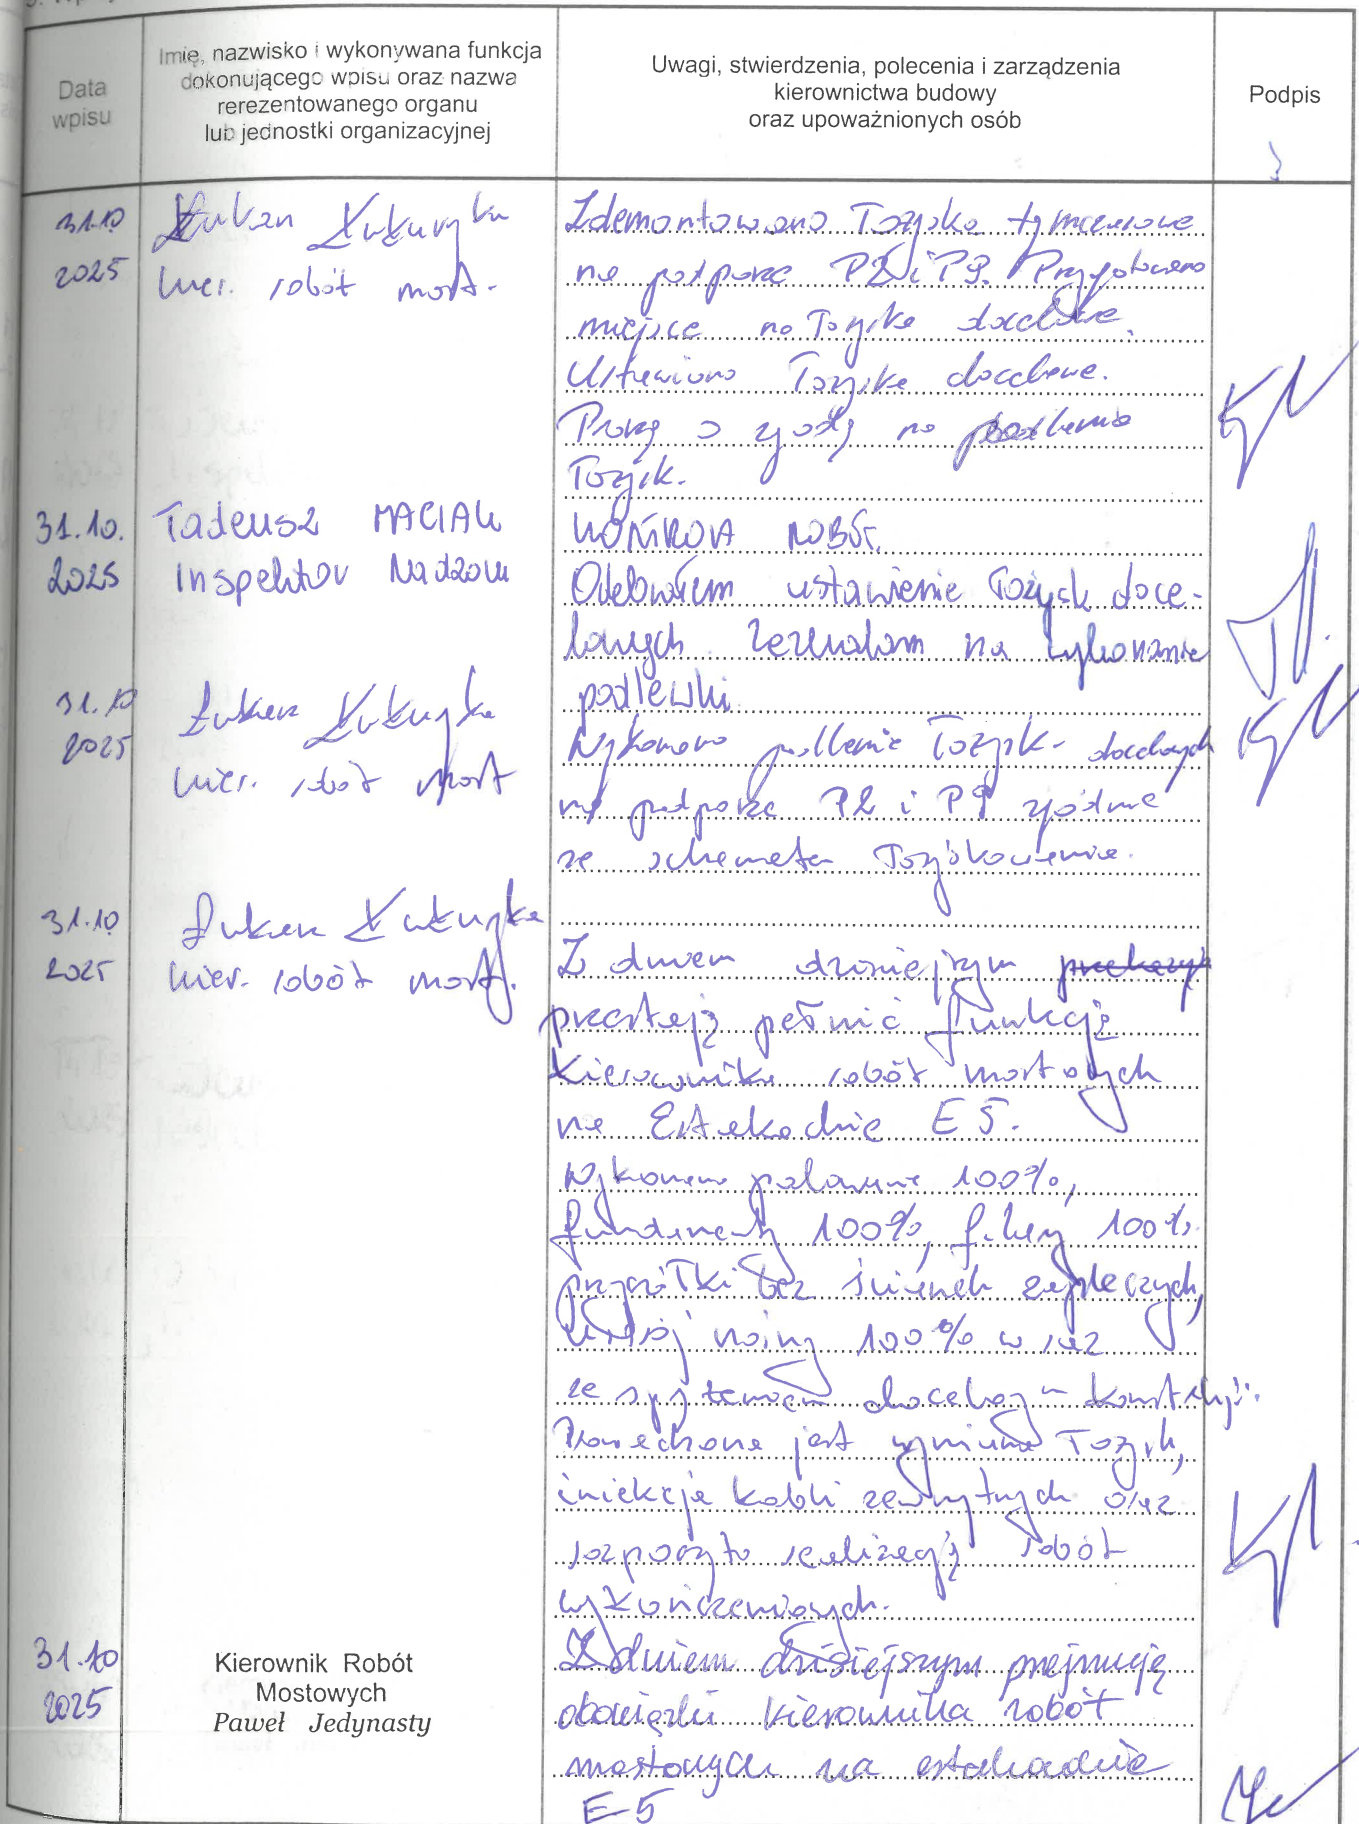 Data
wpisu
Imię, nazwisko i wykonywana funkcja
dokonującego wpisu oraz nazwa
rerezentowanego organu
lub jednostki organizacyjnej
Uwagi, stwierdzenia, polecenia i zarządzenia
kierownictwa budowy
oraz upoważnionych osób
Podpis
31.10
2025
Łukasz
kier. robót most.
Zdemontowano łożyska tymczasowe
na podporze P2 i P9. Przygotowano
miejsce na łożyska docelowe.
Ustawiono łożyska docelowe.
Proszę o zgodę na podlewanie
łożysk.
31.10.
2025
Tadeusz MACIAK
Inspektor Nadzoru
KONTROLA ROBÓT.
Odebrałem ustawienie łożysk doce-
lowych. Zezwalam na wykonanie
podlewki
31.10
2025
Łukasz
kier. robót most
Wykonano podlanie łożysk docelowych
na podporze P2 i P9 zgodnie
ze schematem łożyskowania.
31.10
2025
Łukasz
kier. robót most.
Z dniem dzisiejszym
przestaję pełnić funkcję
Kierownika robót mostowych
na Estakadzie E5.
Wykonano palowanie 100%,
fundamenty 100%, filary 100%
przyczółki bez ścianek zaplecznych,
ustrój nośny 100% wraz
ze spężeniem docelowym konstrukcji.
jest wymiana łożysk,
iniekcja kabli zewnętrznych oraz
rozpoczęto realizację robót
wykończeniowych.
31.10
2025
Kierownik Robót
Mostowych
Paweł Jedynasty
Z dniem dzisiejszym przejmuję
obowiązki kierownika robót
mostowych na estakadzie
E-5